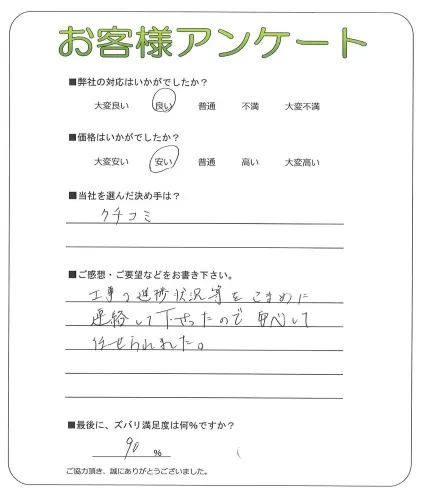 お客様アンケート
■弊社の対応はいかがでしたか？
大変良い 良い 普通 不満 大変不満
■価格はいかがでしたか？
大変安い 安い 普通 高い 大変高い
■当社を選んだ決め手は？
クチコミ
■ご感想・ご要望などをお書き下さい。
工事の進捗状況等をこまめに
連絡して下さったので安心して
任せられました。
■最後に、ズバリ満足度は何％ですか？
90 ％
ご協力頂き、誠にありがとうございました。